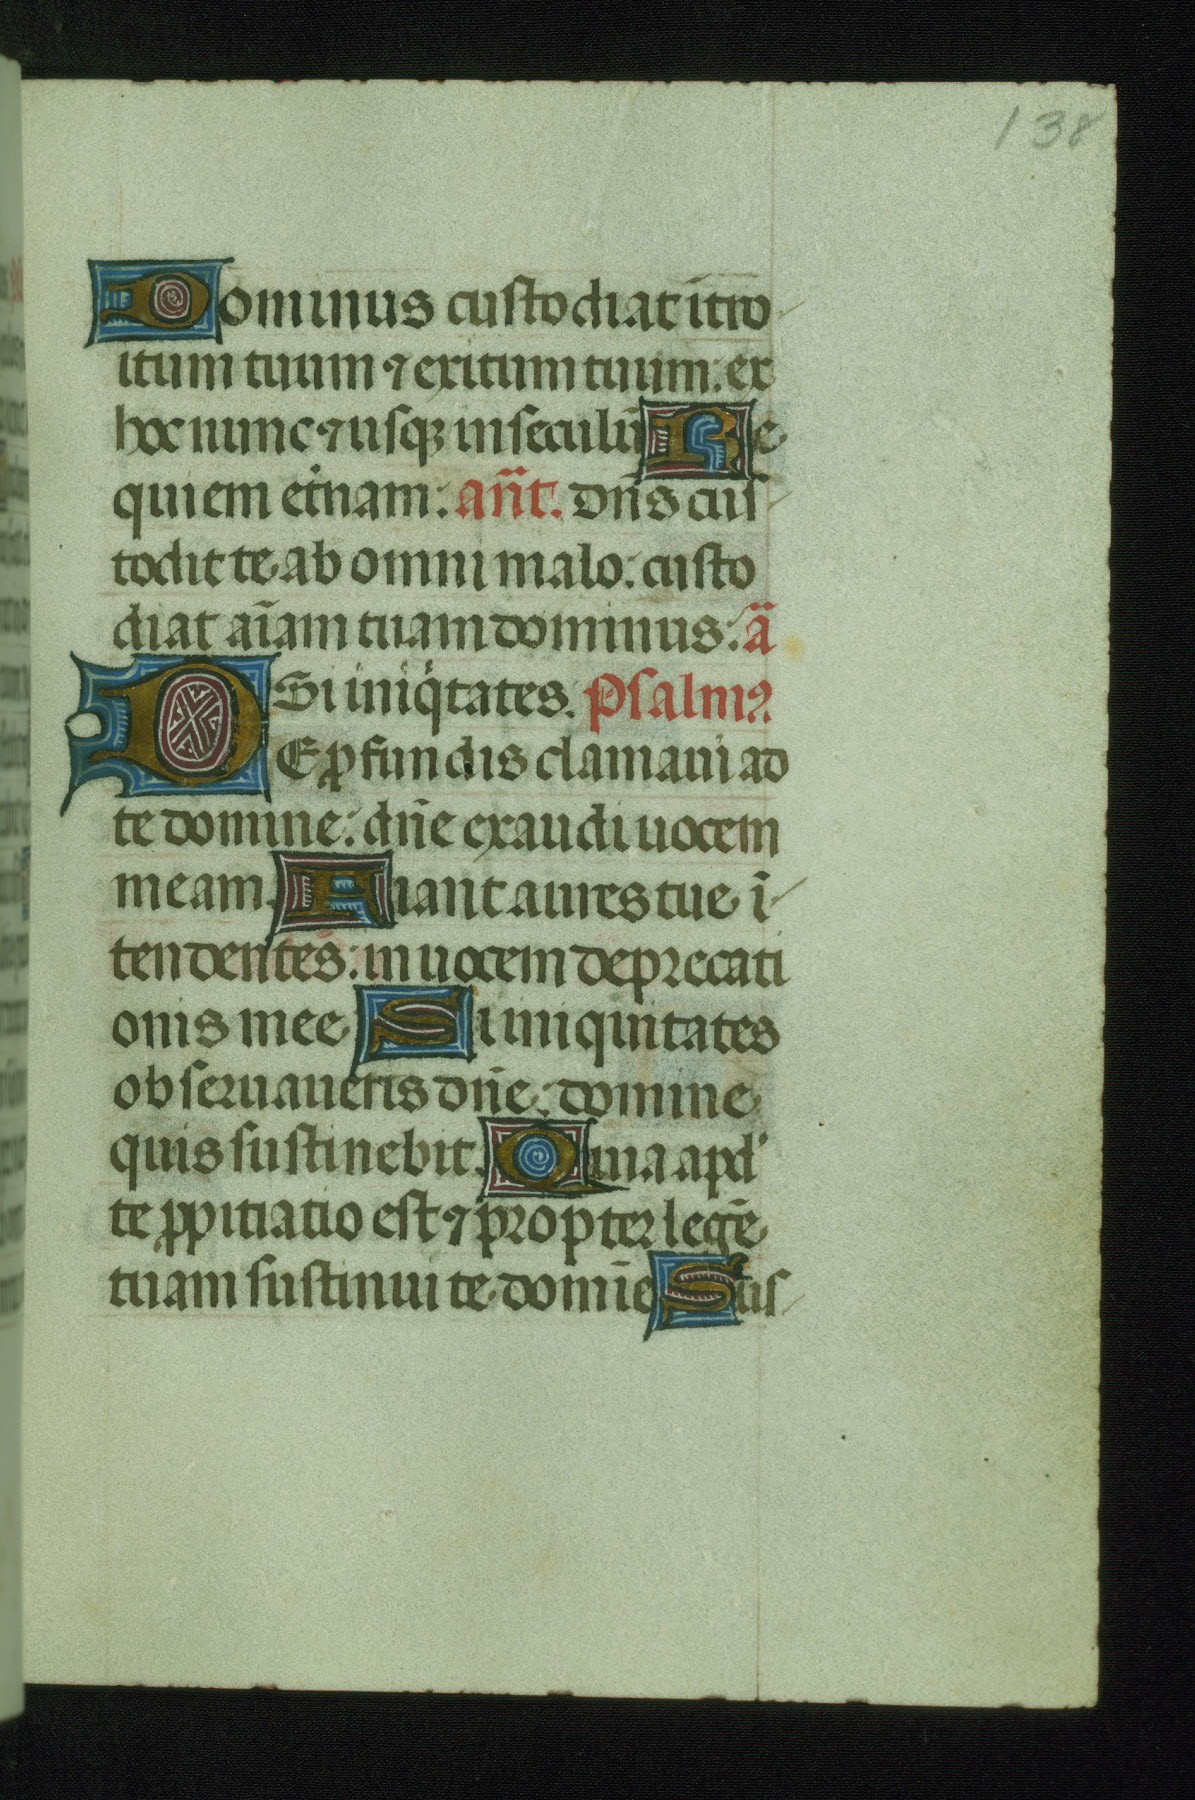 138
Dominus custodiat ītro
itum tuum ⁊ exitum tuum: ex
hoc nunc ⁊ usqꝫ in seculū Re
quiem et̾nam: an̄t. dn̄s cus
todit te ab omni malo: custo
diat aīam tuam dominus: ā
Si iniqͥtates. Psalmꝰ
DE ꝓfundis clamaui ad
te domine: dn̄e exaudi uocem
meam. Fiant aures tue ī
tendentes: in uocem deprecati
onis mee Si iniquitates
obseruaueris dn̄e: domine
quis sustinebit. Quia apd'
te ꝓpitiatio est ⁊ propter legē
tuam sustinui te domīe Sus